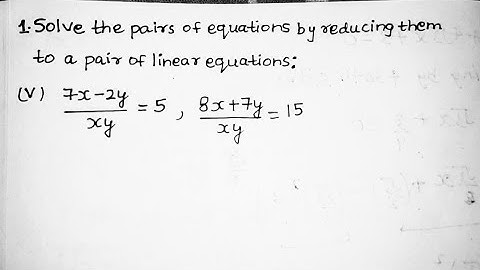 1. Solve the pairs of equations by reducing them
to a pair of linear equations:
(V) 7x-2y/xy = 5 , 8x+7y/xy = 15